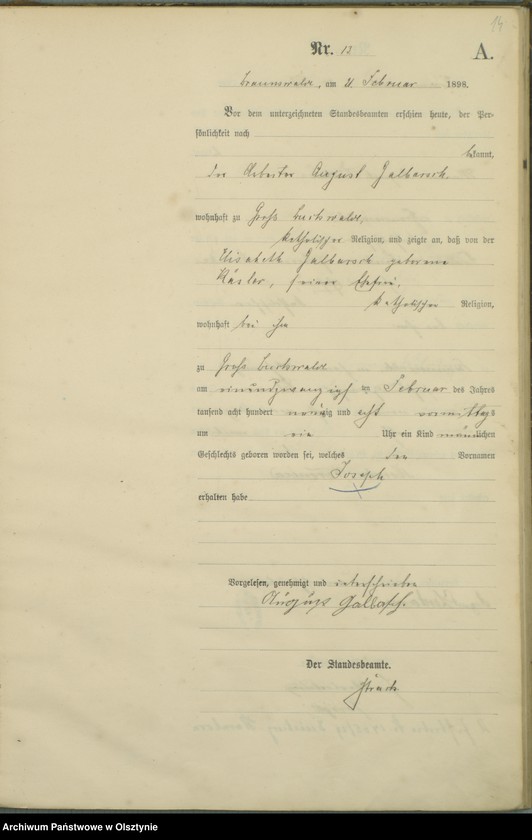 14
Nr. 12
A.
Braunswalde, am 21 Februar 1898.
Vor dem unterzeichneten Standesbeamten erschien heute, der Per-
sönlichkeit nach
bekannt,
der Arbeiter August
wohnhaft zu Groß Buchwalde
katholischer Religion, und zeigte an, daß von der
Elisabeth geborene
seiner Ehefrau,
katholischer Religion,
wohnhaft bei ihm
zu Groß Buchwalde
am einundzwanzigsten Februar des Jahres
tausend acht hundert neunzig und acht vormittags
um Uhr ein Kind männlichen
Geschlechts geboren worden sei, welches den Vornamen
Joseph
erhalten habe
Vorgelesen, genehmigt und unterschrieben
August Gallasch
Der Standesbeamte.
Archiwum Państwowe w Olsztynie